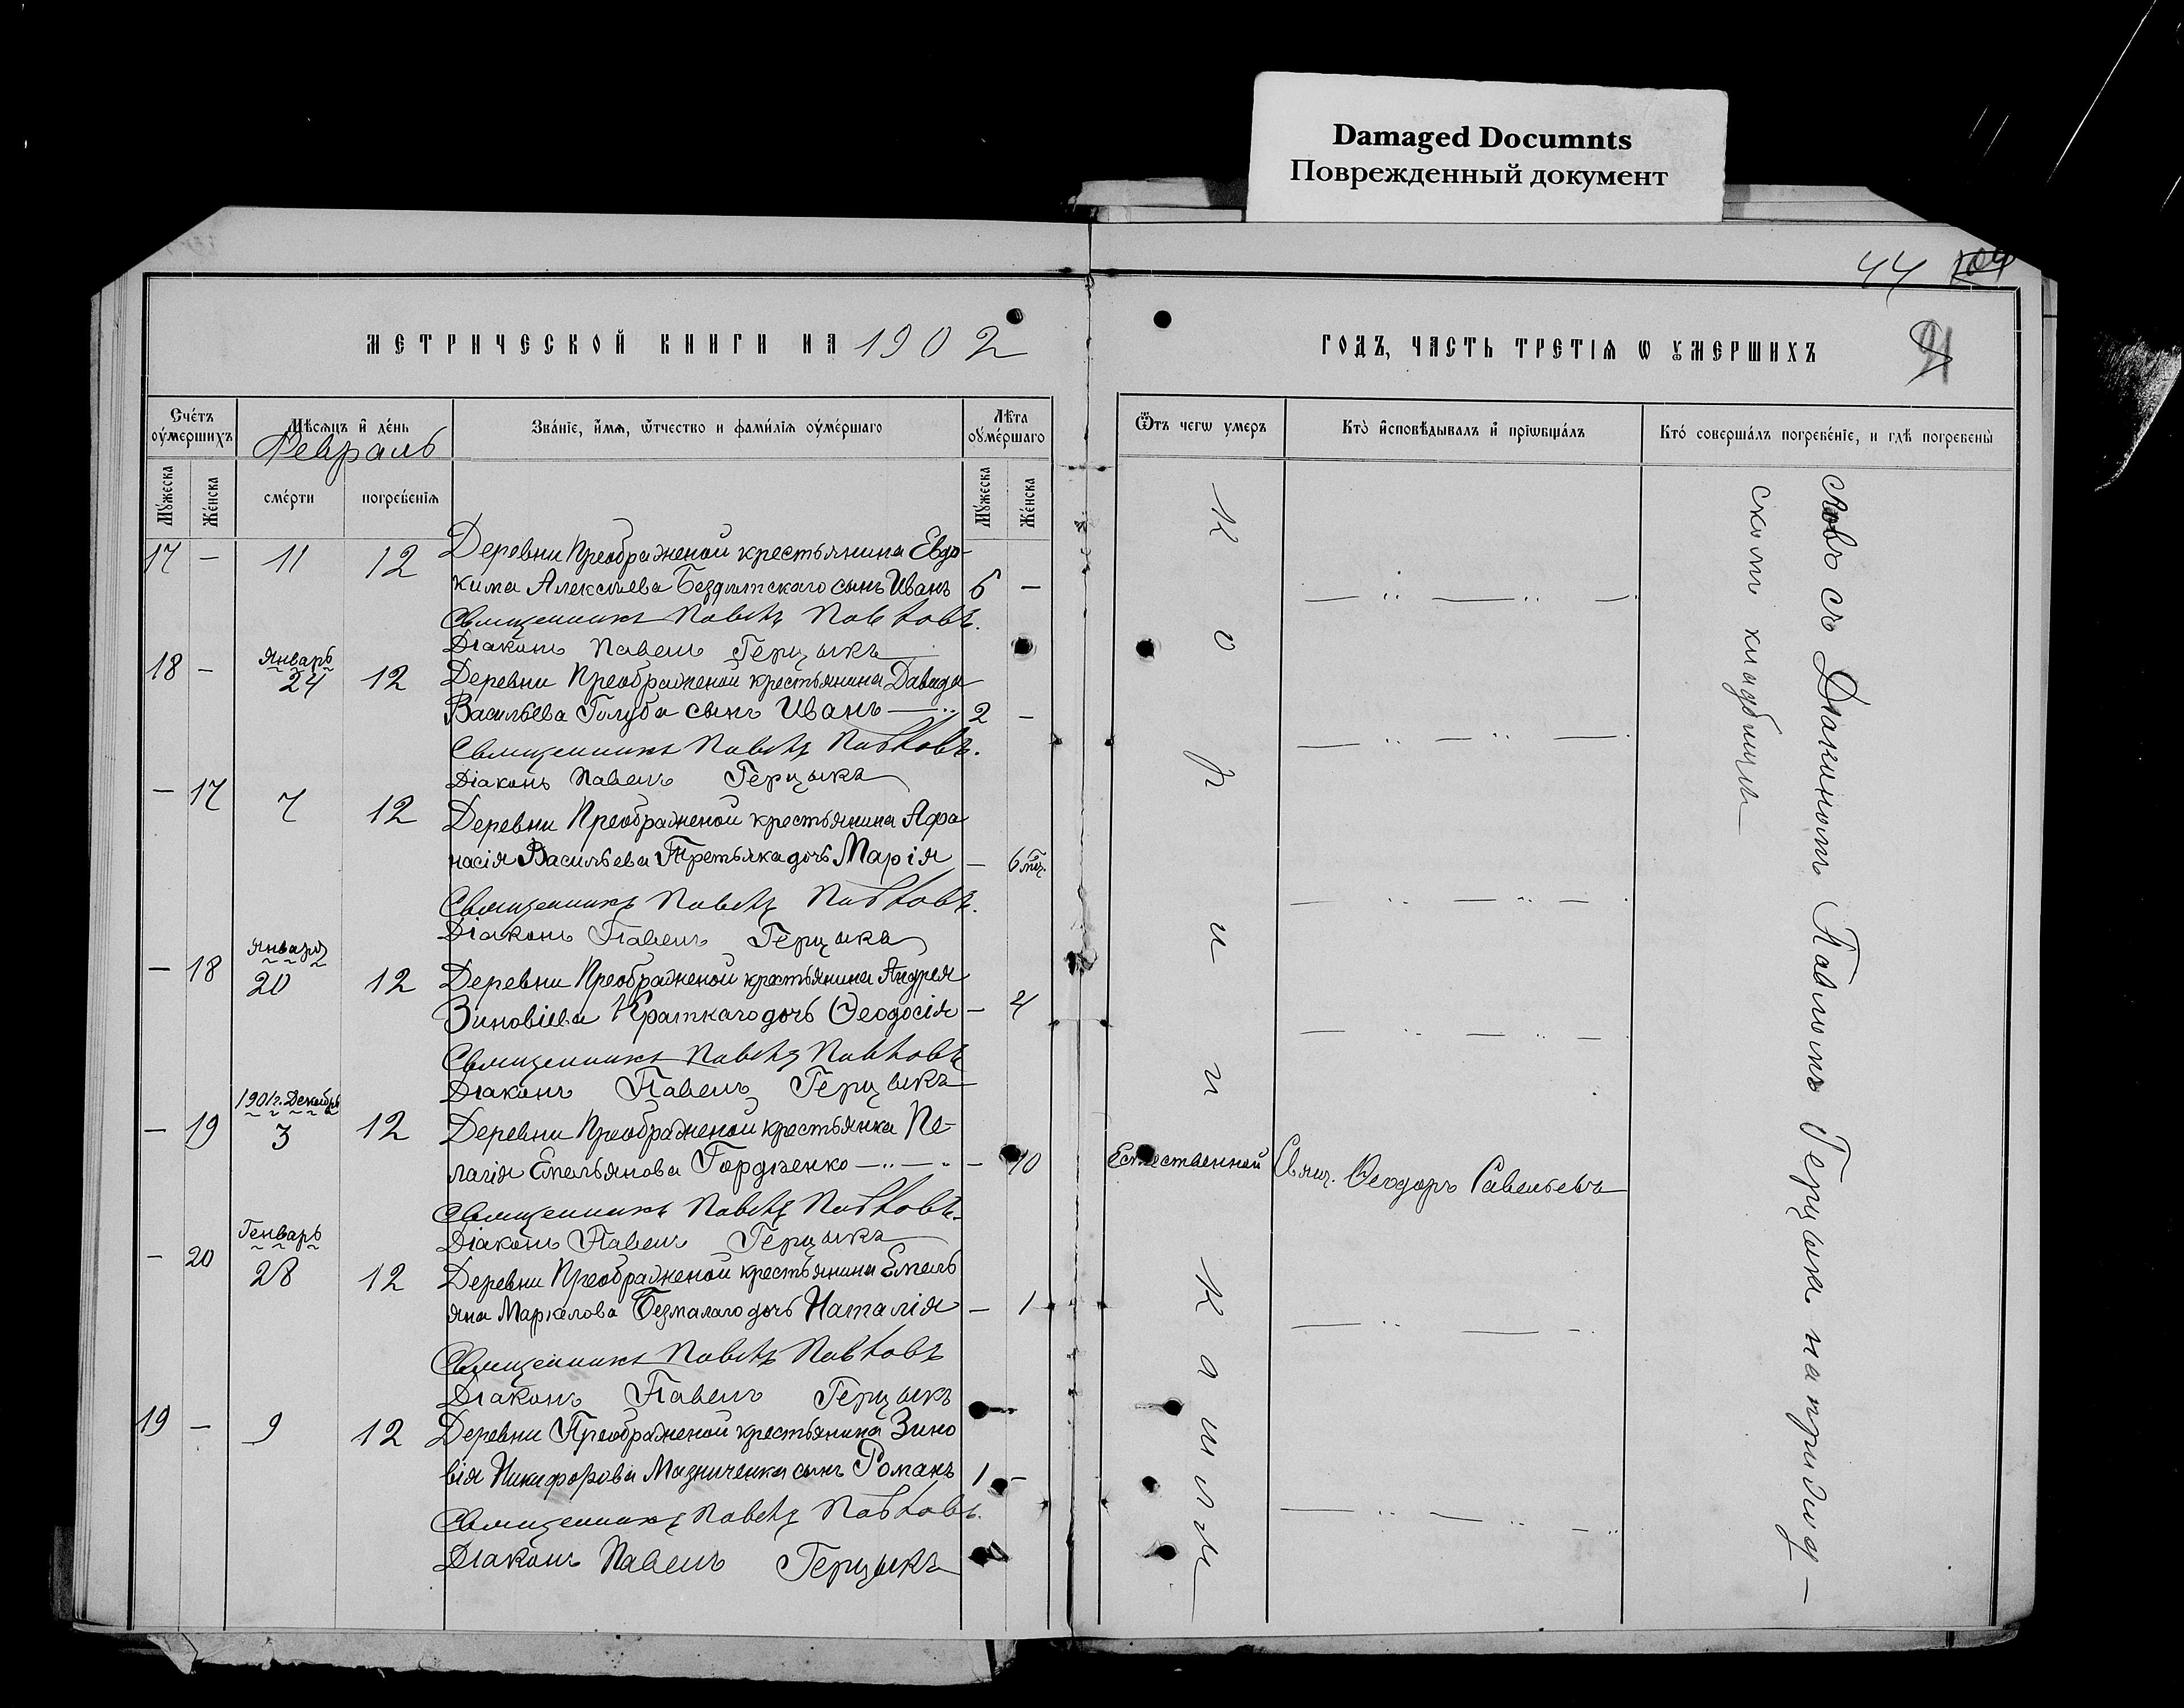 Damaged Documnts
Поврежденный документ
44 104
МЕТРИЧЕСКОЙ КНИГИ НА 1902
ГОДЪ, ЧАСТЬ ТРЕТІѦ Ѡ ꙊМЕРШИХЪ
Счетъ оумершихъ
Мѣсяцъ и день
Февраль
Званіе, имя, отчество и фамилія оумершаго
Лѣта оумершаго
Мужеска
Женска
смерти
погребенія
Мужеска
Женска
Отъ чегѡ умеръ
Кто исповѣдывалъ и пріѡбщалъ
Кто совершалъ погребеніе, и гдѣ погребены
17 — 11 12 Деревни Преображеной крестьянина Евдо-
кима Алексѣева Бездѣтскаго сынъ Иванъ —
Священникъ Павелъ Павловъ.
Діаконъ Павелъ Герцыкъ
18 — Январь 24 12 Деревни Преображеной крестьянина Давида
Васильева Голуба сынъ Иванъ 2 —
Священникъ Павелъ Павловъ.
Діаконъ Павелъ Герцыкъ
— 17 7 12 Деревни Преображеной крестьянина Афа
насія Васильева Третьяка дочь Марія — 6 мѣс.
Священникъ Павелъ Павловъ.
Діаконъ Павелъ Герцыкъ
— 18 Январь 20 12 Деревни Преображеной крестьянина Андрея
Зиновіева Краткаго дочь Ѳеодосія —
Священникъ Павелъ Павловъ
Діаконъ Павелъ Герцыкъ
— 19 1901 г. Декабрь 3 12 Деревни Преображеной крестьянка Пе-
лагія Емельянова Гордѣенко — 70
Священникъ Павелъ Павловъ.
Діаконъ Павелъ Герцыкъ
— 20 Генварь 28 12 Деревни Преображеной крестьянина Емель
яна Маркелова Безмалаго дочь Наталія — 1
Священникъ Павелъ Павловъ
Діаконъ Павелъ Герцыкъ
19 — 9 12 Деревни Преображеной крестьянина Зино
вія Никифорова Мазниченка сынъ Романъ 1 —
Священникъ Павелъ Павловъ.
Діаконъ Павелъ Герцыкъ
Естественной
Свящ. Ѳеодоръ Савельевъ
съ Діакономъ Павломъ Герцыкъ на приход
скомъ кладбищѣ